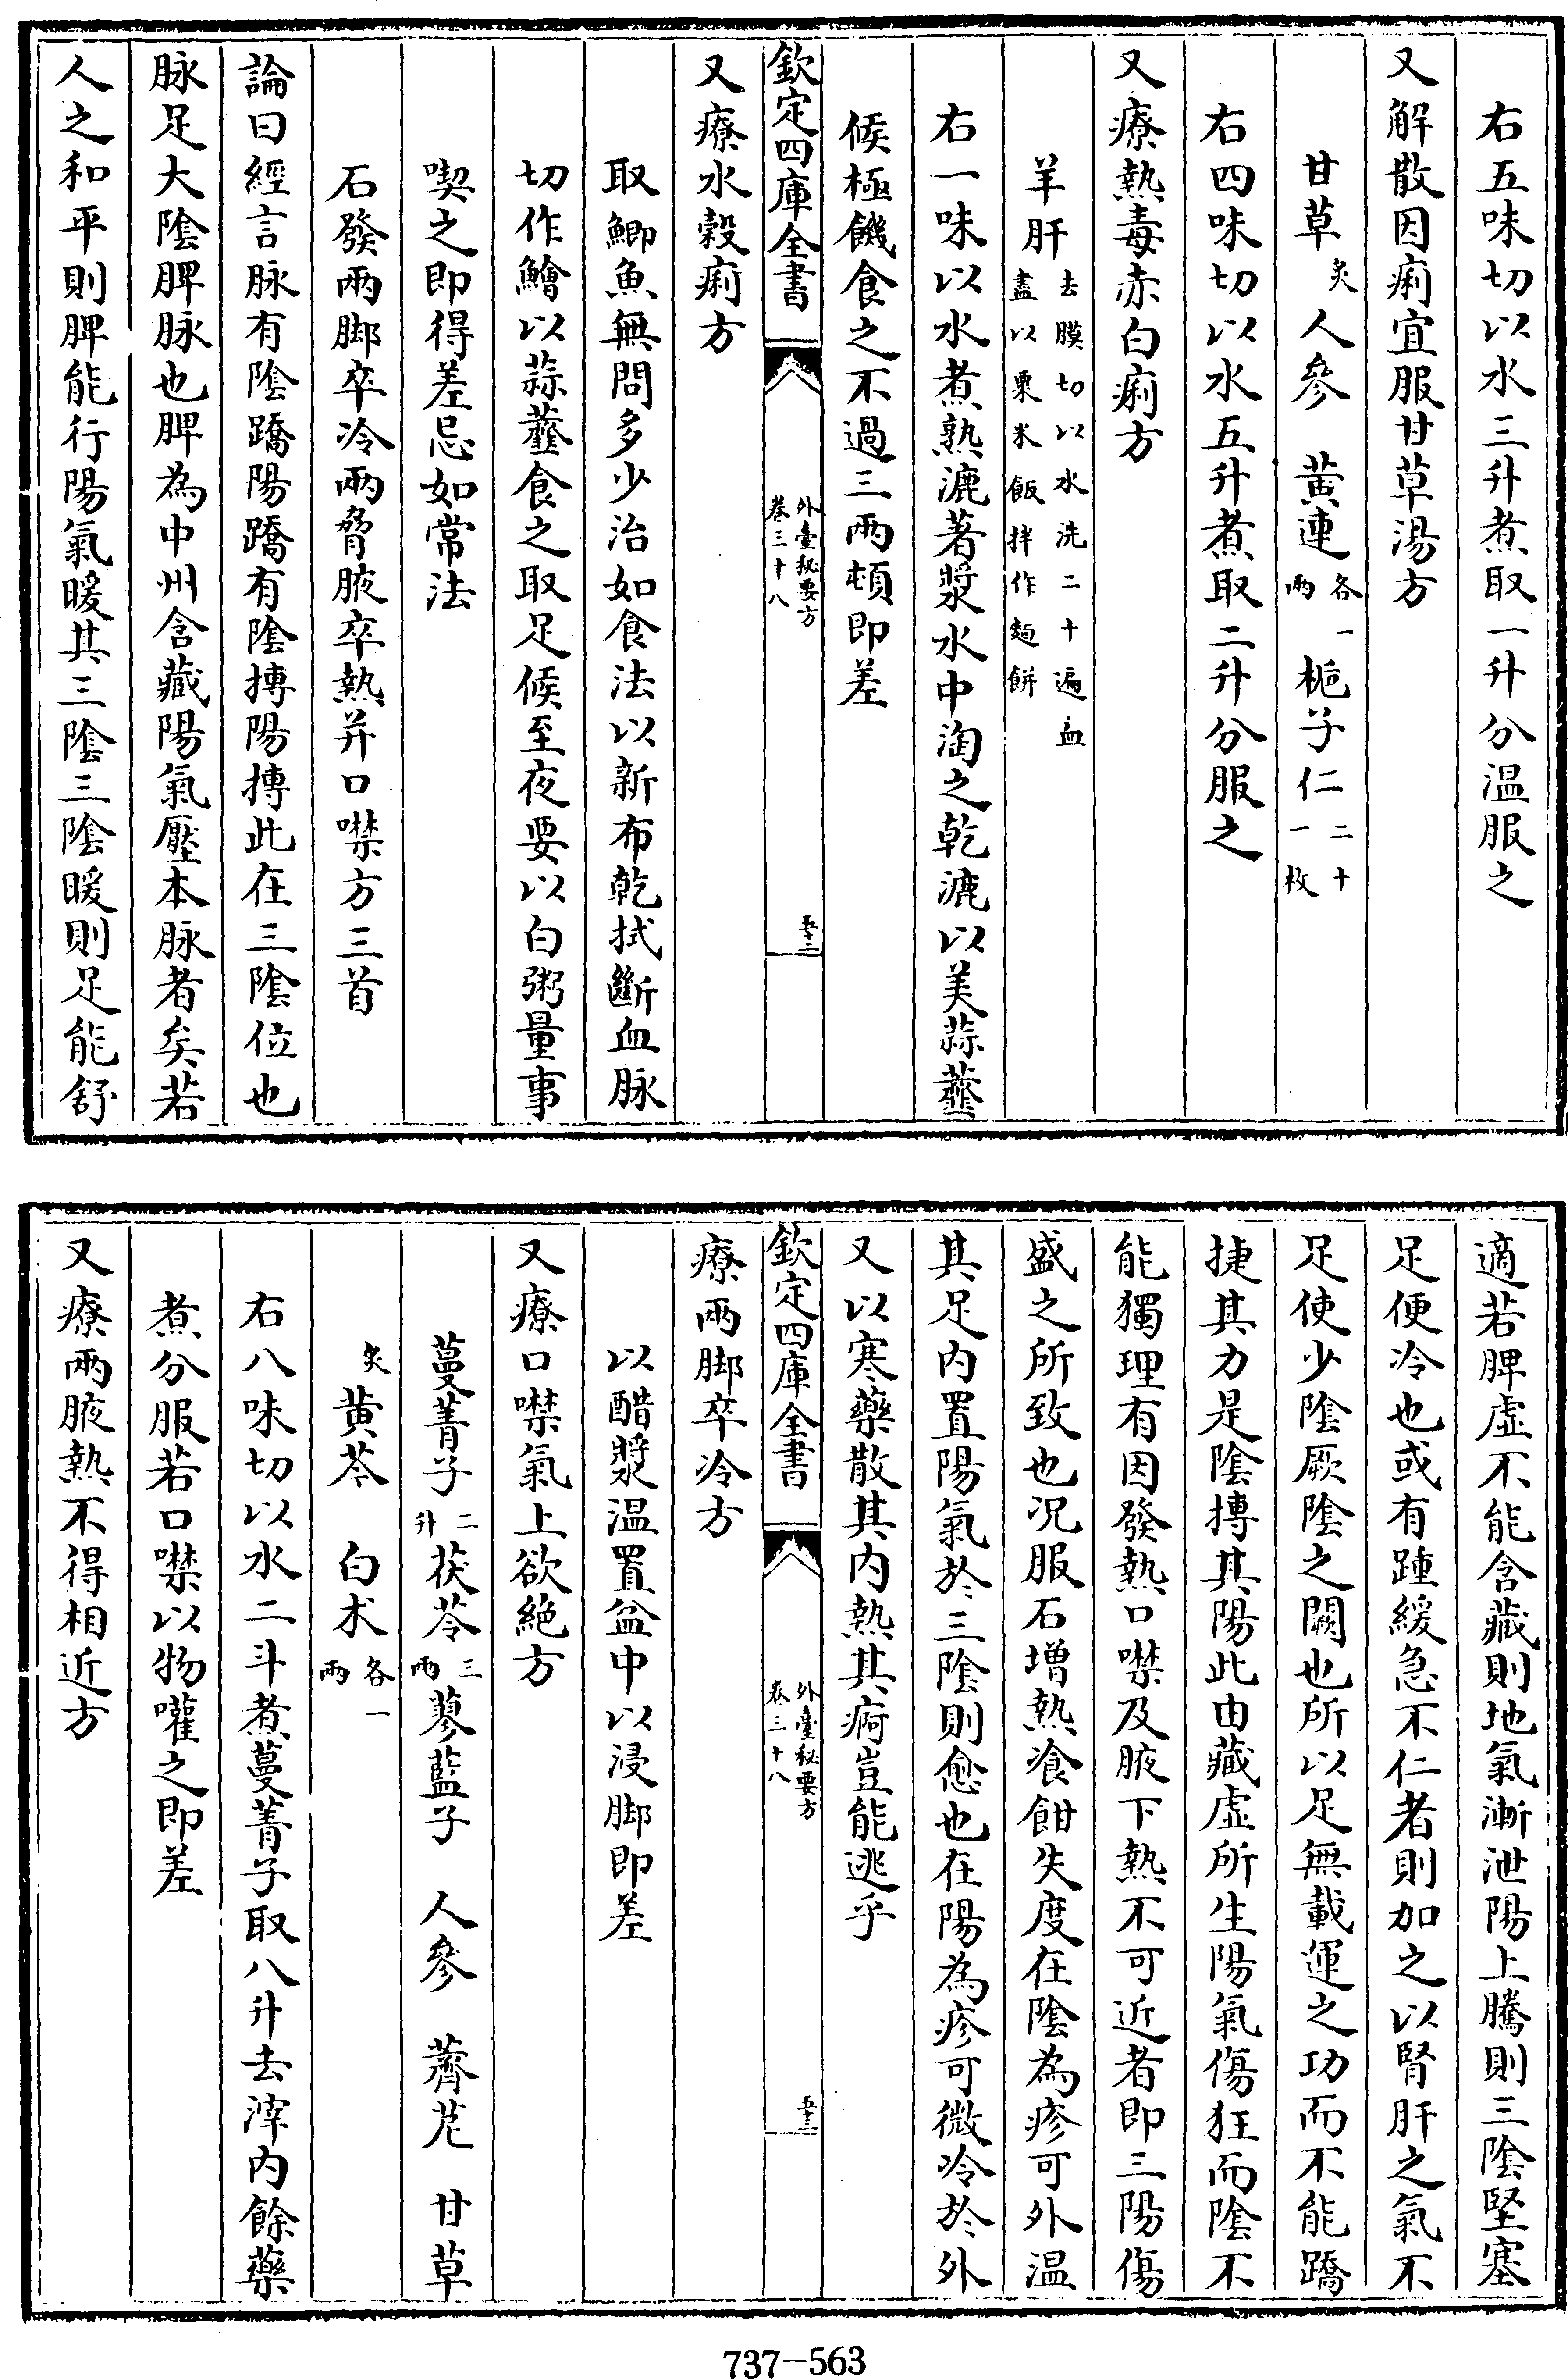 右五味切以水三升煮取一升分温服之
又解散因痢宜服甘草湯方
甘草炙人參　黄連各一兩梔子仁二十一枚
右四味切以水五升煮取二升分服之
又療熱毒赤白痢方
羊肝去膜切以水洗二十遍血盡以粟米飯拌作麵餅
右一味以水煮熟漉著漿水中淘之乾漉以美蒜虀
候極饑食之不過三兩頓即差
欽定四庫全書
外臺秘要方
卷三十八
五十二
又療水穀痢方
取鯽魚無問多少治如食法以新布乾拭斷血脉
切作鱠以蒜虀食之取足候至夜要以白粥量事
喫之即得差忌如常法
石發兩脚卒冷兩脅腋卒熱并口噤方三首
論曰經言脉有陰蹻陽蹻有陰摶陽摶此在三陰位也
脉足大陰脾脉也脾為中州含藏陽氣壓本脉者矣若
人之和平則脾能行陽氣暖其三陰三陰暖則足能舒
適若脾虛不能含藏則地氣漸泄陽上騰則三陰堅塞
足便冷也或有踵緩急不仁者則加之以腎肝之氣不
足使少陰厥陰之闕也所以足無載運之功而不能蹻
捷其力是陰摶其陽此由藏虛所生陽氣傷狂而陰不
能獨理有因發熱口噤及腋下熱不可近者即三陽傷
盛之所致也况服石增熱飡餔失度在陰為疹可外温
其足内置陽氣於三陰則愈也在陽為疹可微冷於外
又以寒藥散其内熱其痾豈能逃乎
欽定四庫全書
外臺秘要方
卷三十八
五十三
療兩脚卒冷方
以醋漿温置盆中以浸脚即差
又療口噤氣上欲絶方
蔓菁子二升茯苓三兩蓼藍子　人參　薺苨　甘草
炙黄芩　白术各一兩
右八味切以水二斗煮蔓菁子取八升去滓内餘藥
煮分服若口噤以物嚾之即差
又療兩腋熱不得相近方
737-563